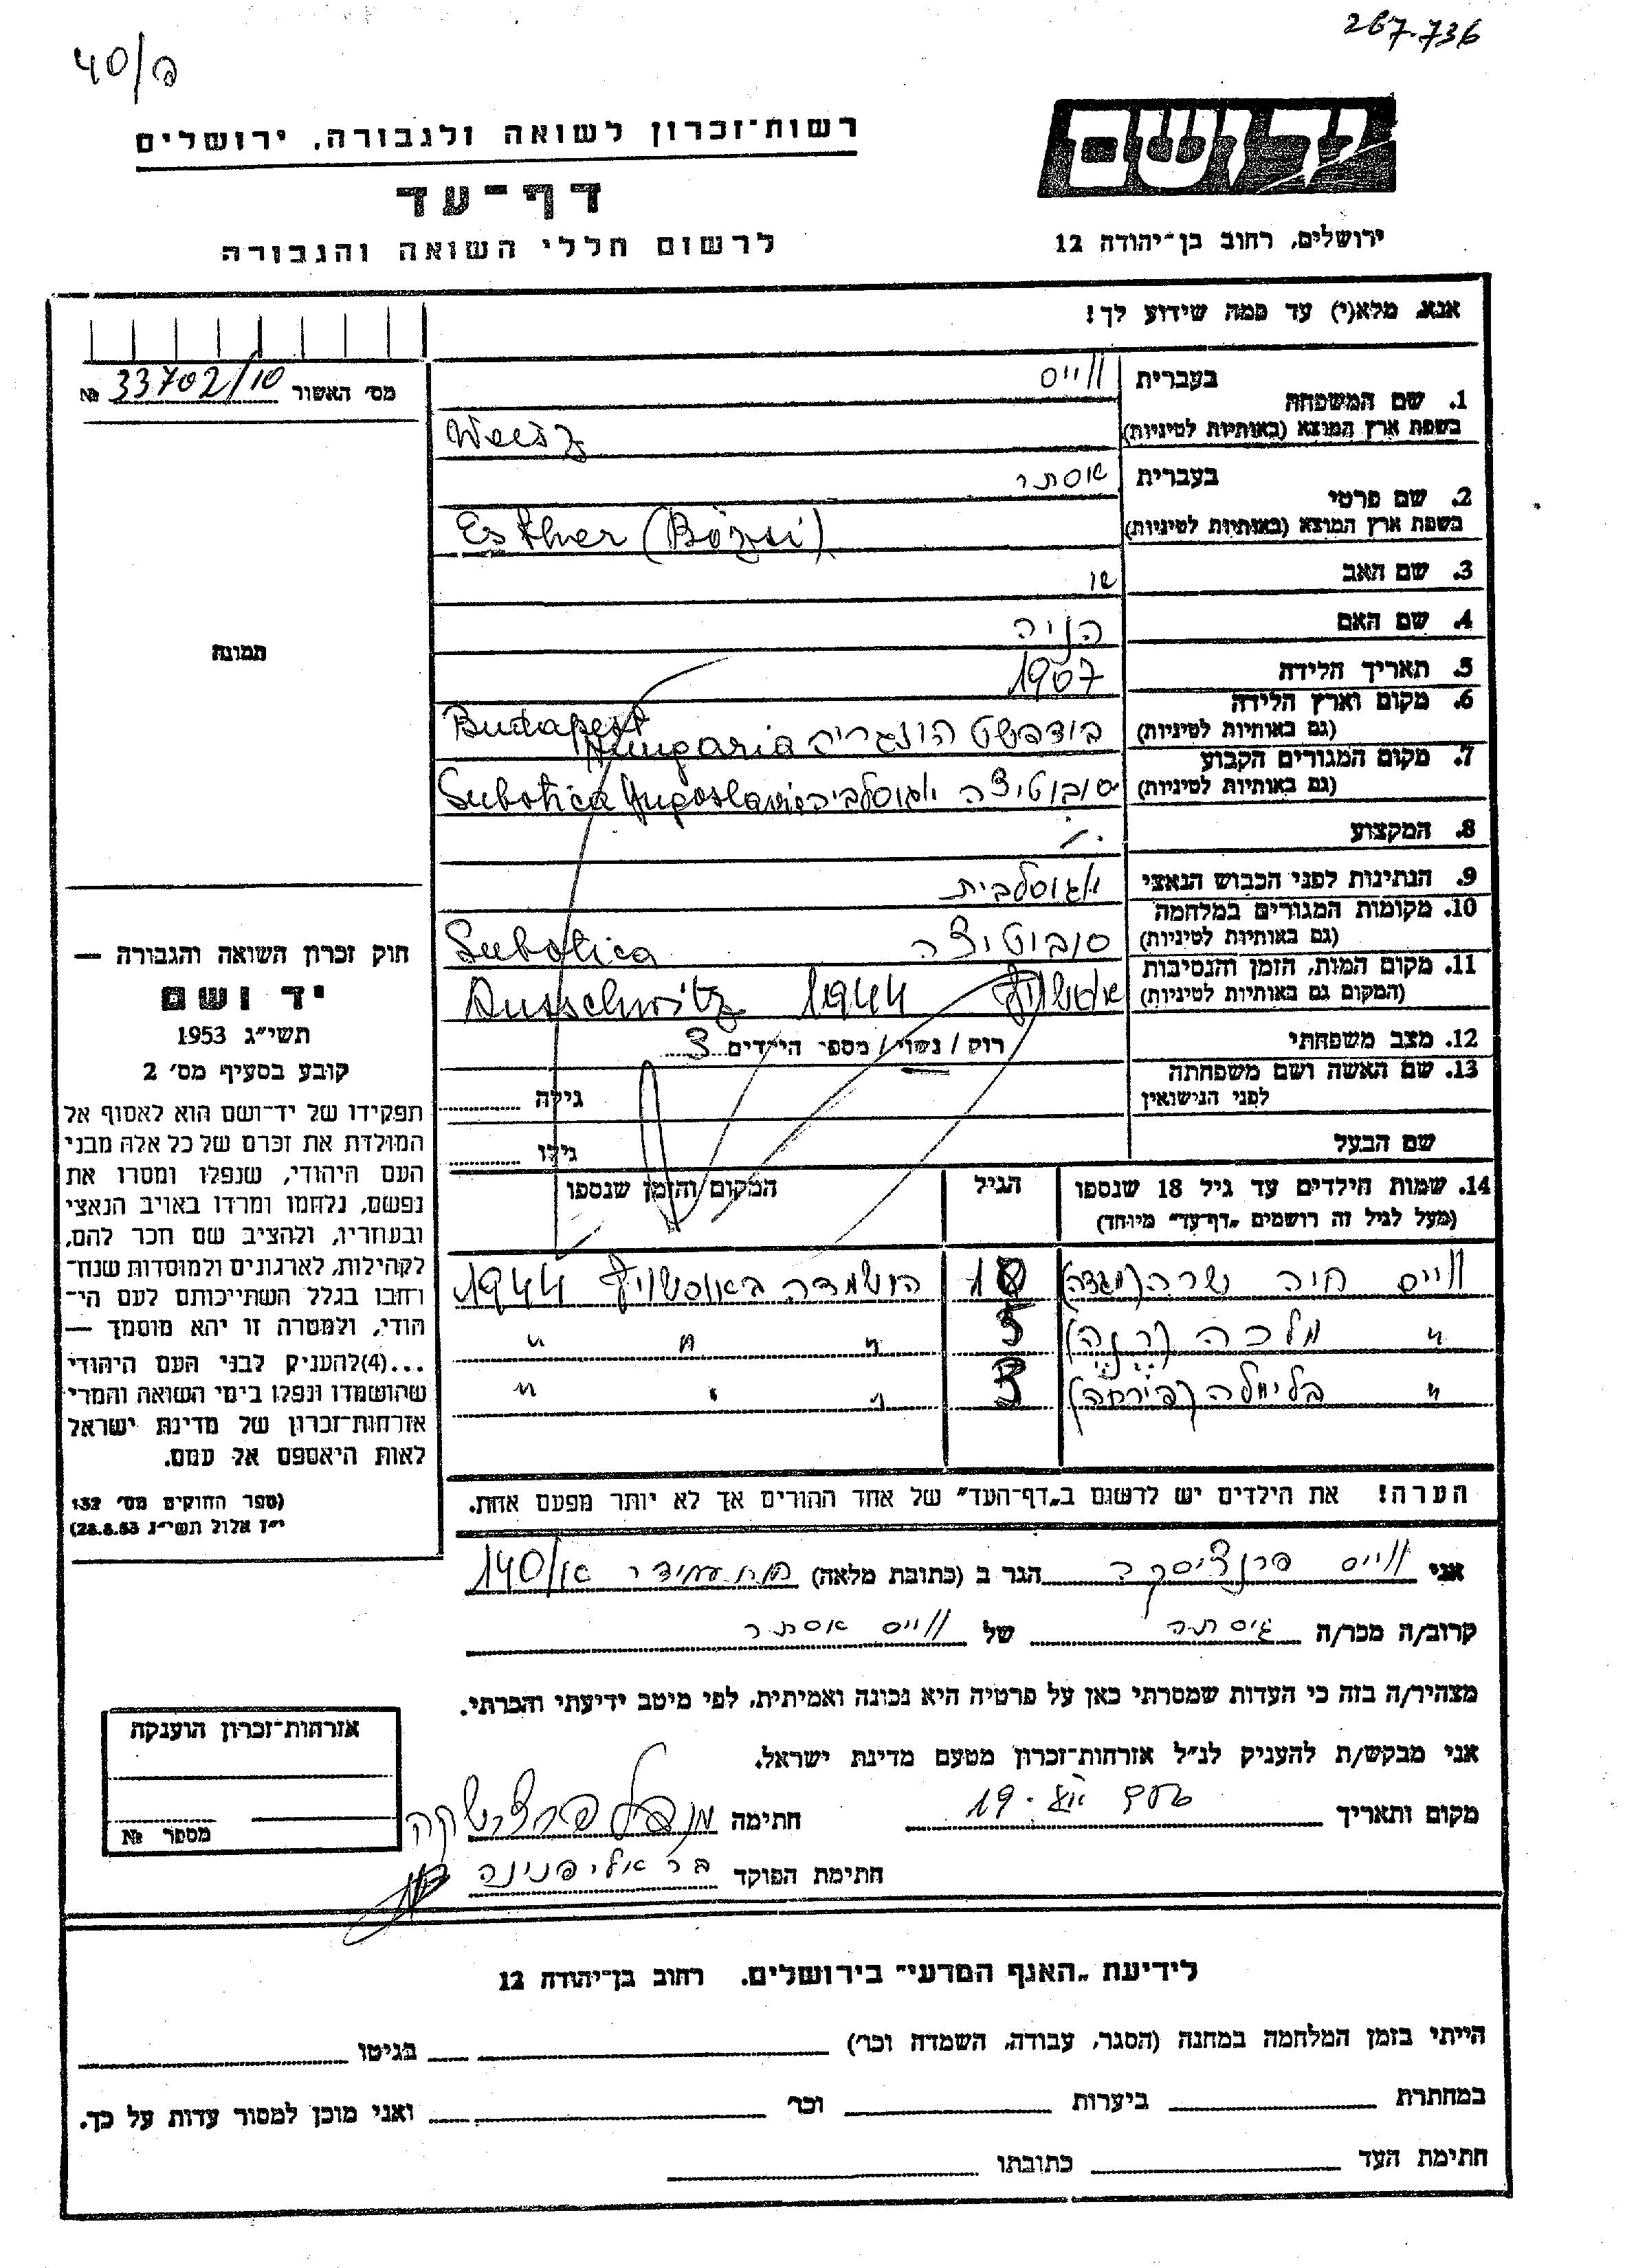 267.736
40/ם
רשות־זכרון לשואה ולגבורה, ירושלים
דף־עד
לרשום חללי השואה והגבורה
ירושלים, רחוב בן־יהודה 12
אנא, מלא(י) עד כמה שידוע לך!
מס׳ האשור 33702/10 №
1. שם המשפחה
בעברית וייס
בשפת ארץ המוצא (באותיות לטיניות) Weisz
2. שם פרטי
בעברית אסתר
בשפת ארץ המוצא (באותיות לטיניות) Esther (Bözsi)
3. שם האב
4. שם האם הניה
5. תאריך הלידה 1907
6. מקום וארץ הלידה
(גם באותיות לטיניות) בודפשט הונגריה Budapest Hungaria
7. מקום המגורים הקבוע
(גם באותיות לטיניות) סובוטיצה יוגוסלביה Subotica Yugoslavia
8. המקצוע
9. הנתינות לפני הכבוש הנאצי יוגוסלבית
10. מקומות המגורים במלחמה
(גם באותיות לטיניות) סובוטיצה Subotica
11. מקום המות, הזמן והנסיבות
(המקום גם באותיות לטיניות) אושויץ 1944 Ausschwitz
12. מצב משפחתי רווק / נשוי / מספר הילדים 3
13. שם האשה ושם משפחתה
לפני הנישואין גילה
שם הבעל גילו
14. שמות הילדים עד גיל 18 שנספו הגיל המקום והזמן שנספו
(מעל לגיל זה רושמים „דף־עד״ מיוחד)
וייס חיה שרה (מגדה) הושמדה באושויץ 1944
״ מלכה 5 ״ ״ ״
״ 3 ״ ״ ״
הערה! את הילדים יש לרשום ב„דף־העד״ של אחד ההורים אך לא יותר מפעם אחת.
תמונה
חוק זכרון השואה והגבורה —
יד ושם
תשי״ג 1953
קובע בסעיף מס׳ 2
תפקידו של יד־ושם הוא לאסוף אל
המולדת את זכרם של כל אלה מבני
העם היהודי, שנפלו ומסרו את
נפשם, נלחמו ומרדו באויב הנאצי
ובעוזריו, ולהציב שם וזכר להם,
לקהילות, לארגונים ולמוסדות שנח־
רבו בגלל השתייכותם לעם הי־
הודי, ולמטרה זו יהא מוסמך —
...(4)להעניק לבני העם היהודי
שהושמדו ונפלו בימי השואה והמרי
אזרחות־זכרון של מדינת ישראל
לאות היאספם אל עמם.
(ספר החוקים מס׳ 132
י״ז אלול תשי״ג 28.8.53)
אני וייס פרנציסקה הגר ב (כתובת מלאה) 140/
קרוב/ה מכר/ה גיסתה של וייס אסתר
מצהיר/ה בזה כי העדות שמסרתי כאן על פרטיה היא נכונה ואמיתית, לפי מיטב ידיעתי והכרתי.
אני מבקש/ת להעניק לנ״ל אזרחות־זכרון מטעם מדינת ישראל.
מקום ותאריך חתימה
חתימת הפוקד בר אלי פנינה
אזרחות־זכרון הוענקה
מספר №
לידיעת „האגף המדעי״ בירושלים. רחוב בן־יהודה 12
הייתי בזמן המלחמה במחנה (הסגר, עבודה, השמדה וכו׳) בגיטו
במחתרת ביערות וכו׳ ואני מוכן למסור עדות על כך.
חתימת העד כתובתו